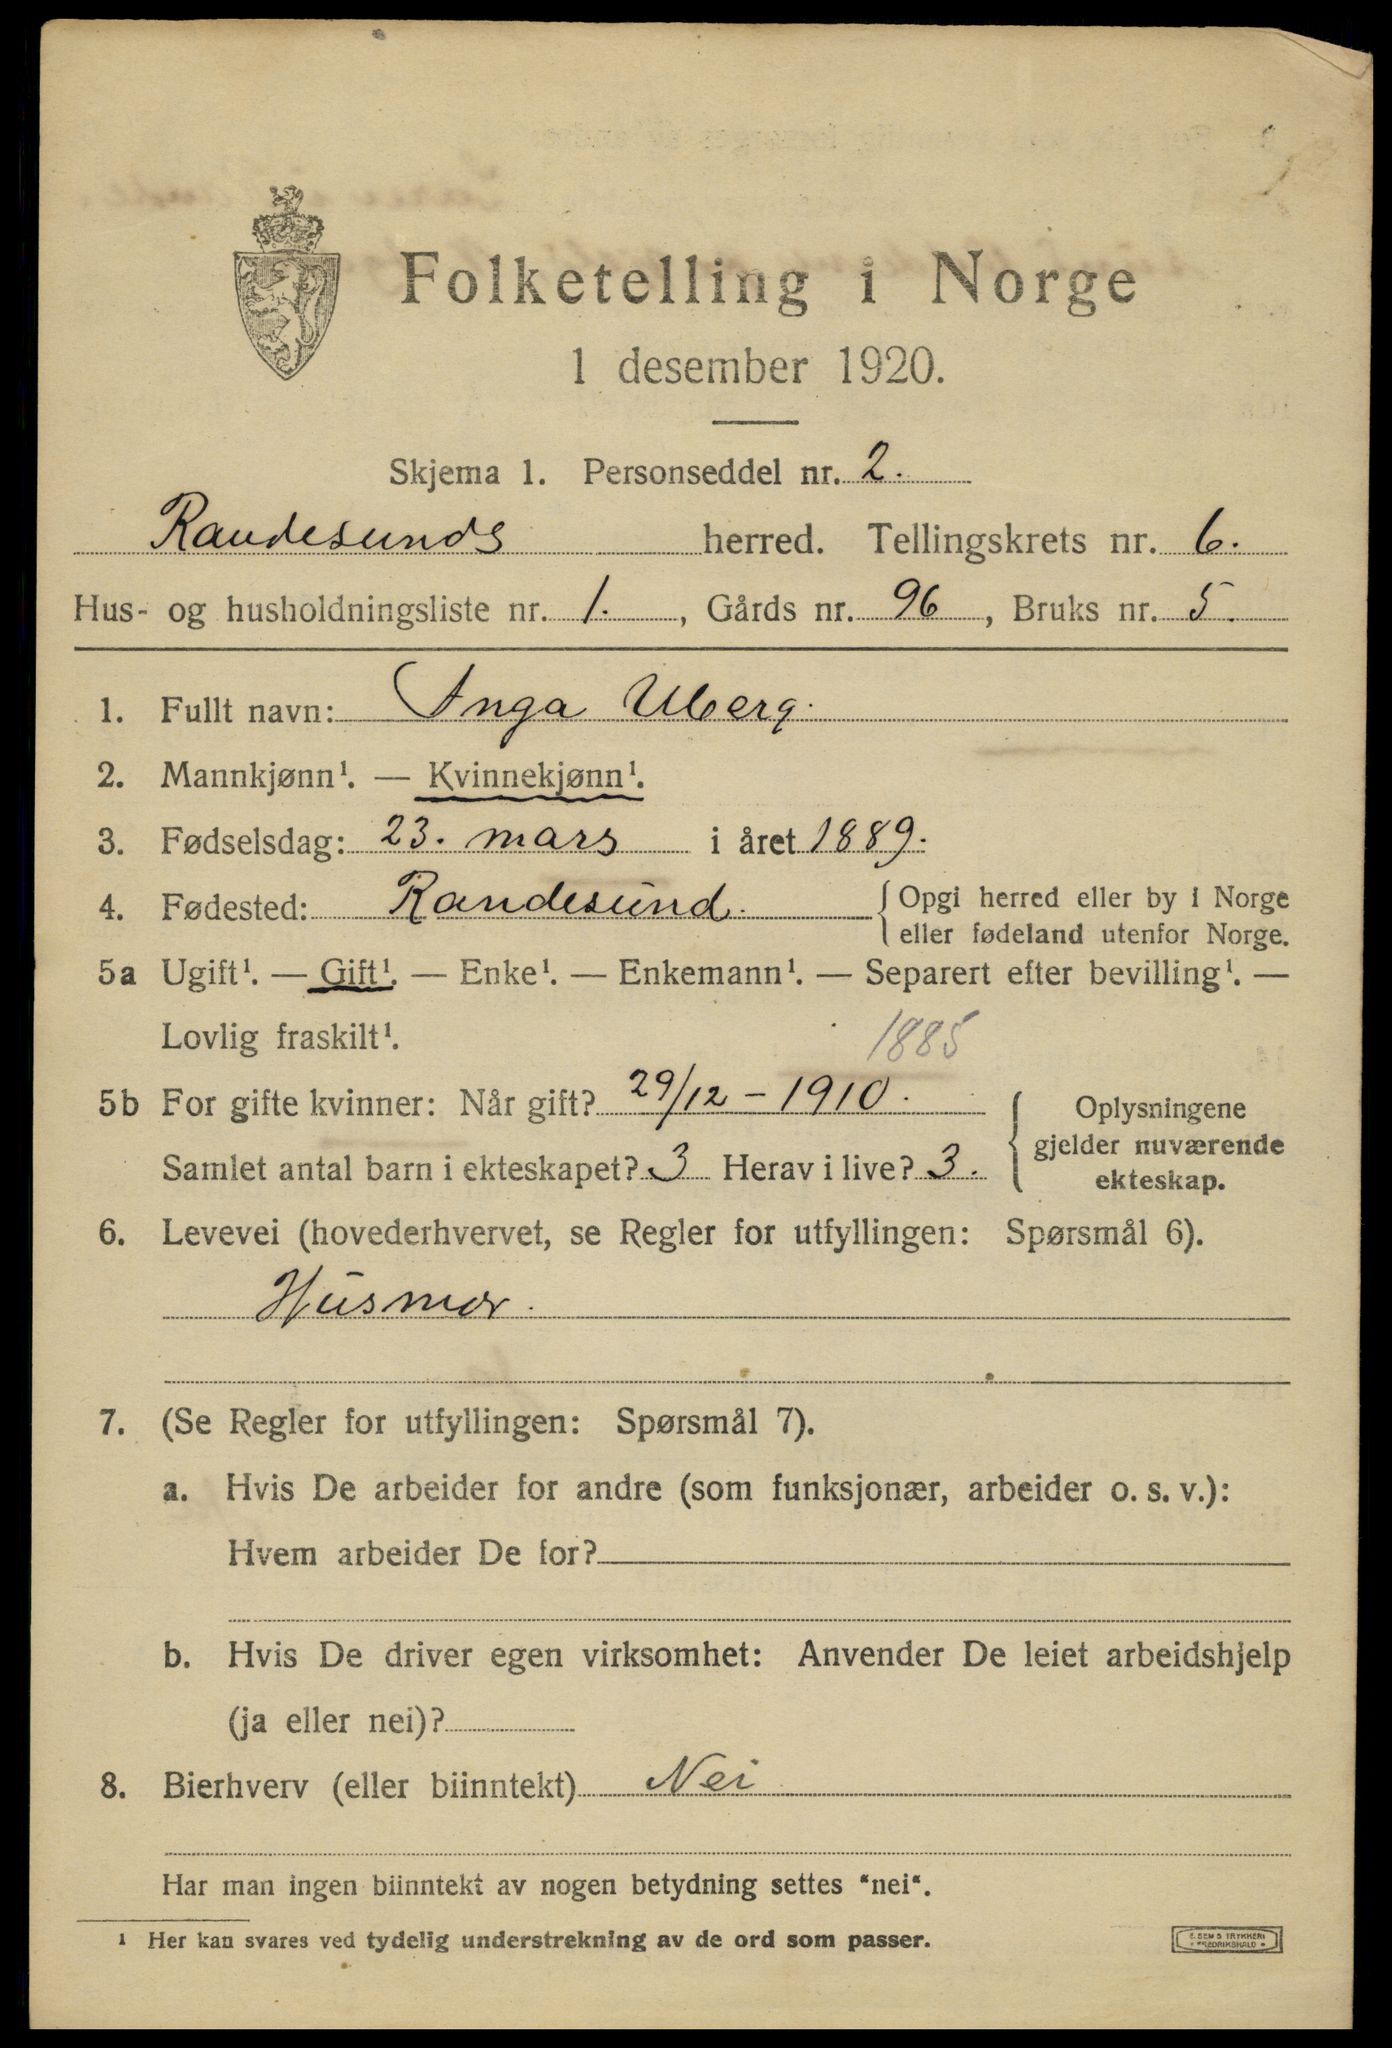 Folketelling i Norge
1 desember 1920.
Skjema 1. Personseddel nr. 2.
Randesunds herred. Tellingskrets nr. 6.
Hus- og husholdningsliste nr. 1. , Gårds nr. 96 , Bruks nr. 5.
1. Fullt navn: Inga Uberg.
2. Mannkjønn¹. — Kvinnekjønn¹.
3. Fødselsdag: 23. mars i året 1889.
4. Fødested: Randesund. { Opgi herred eller by i Norge
eller fødeland utenfor Norge.
5a Ugift¹. — Gift¹. — Enke¹. — Enkemann¹. — Separert efter bevilling¹. —
Lovlig fraskilt¹.
1885
5b For gifte kvinner: Når gift? 29/12 – 1910.
Samlet antal barn i ekteskapet? 3 Herav i live? 3.
{ Oplysningene
gjelder nuværende
ekteskap.
6. Levevei (hovederhvervet, se Regler for utfyllingen: Spørsmål 6).
Husmor.
7. (Se Regler for utfyllingen: Spørsmål 7).
a. Hvis De arbeider for andre (som funksjonær, arbeider o. s. v.):
Hvem arbeider De for?
b. Hvis De driver egen virksomhet: Anvender De leiet arbeidshjelp
(ja eller nei)?
8. Bierhverv (eller biinntekt) Nei
Har man ingen biinntekt av nogen betydning settes "nei".
¹ Her kan svares ved tydelig understrekning av de ord som passer.
E. SEM'S TRYKKERI
FREDRIKSHALD